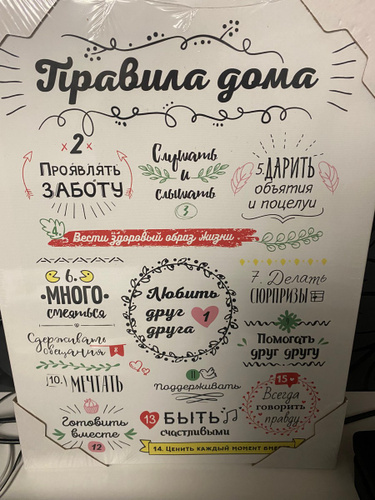 Правила дома
2
Проявлять
ЗАБОТУ
Слушать
и
слышать
3
5. ДАРИТЬ
объятия
и поцелуи
4. Вести здоровый образ жизни
6.
МНОГО
смеяться
Любить
друг
друга
1
7. Делать
СЮРПРИЗЫ
Сдерживать
обещания
Помогать
друг другу
10. МЕЧТАТЬ
11
Поддерживать
15
Всегда
говорить
правду
Готовить
вместе
12
13 БЫТЬ
счастливыми
14. Ценить каждый момент